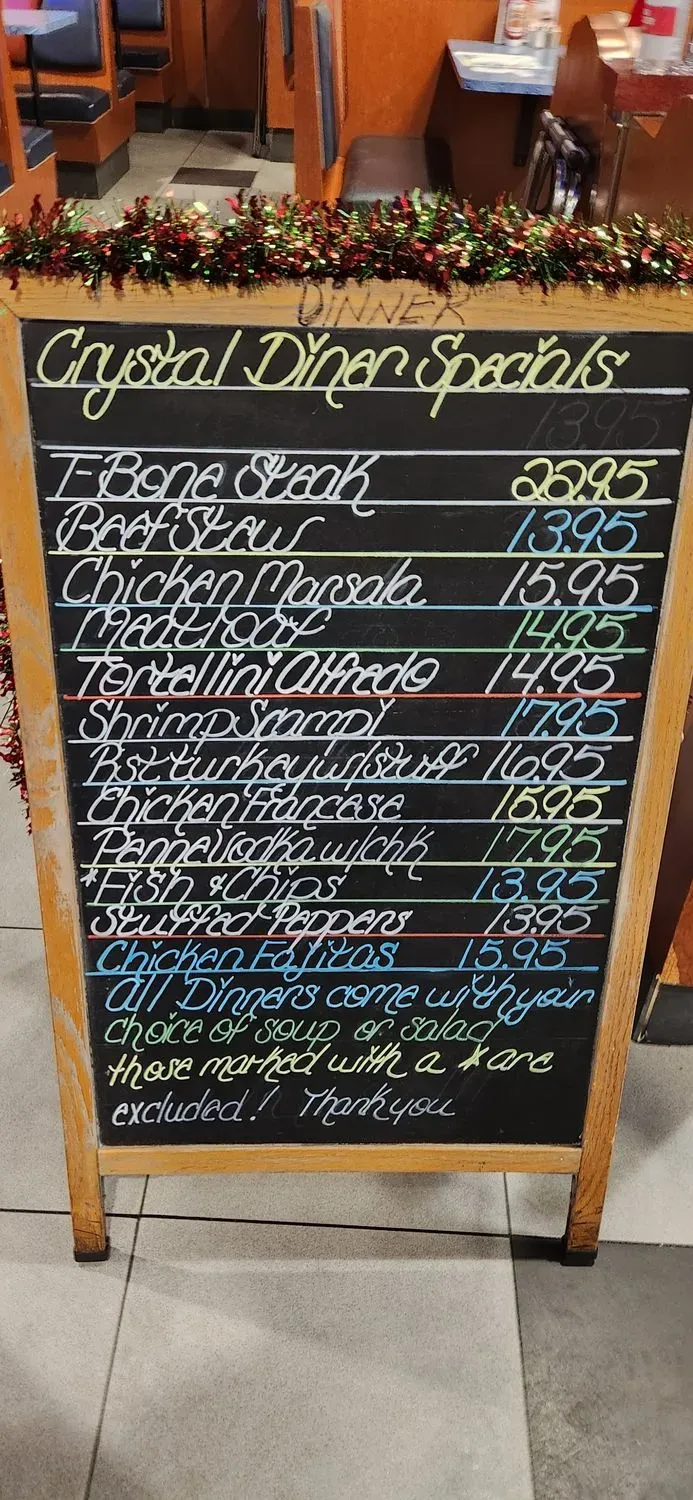 DINNER
Crystal Diner Specials
13.95
T-Bone Steak 22.95
Beef Stew 13.95
Chicken Marsala 15.95
Meatloaf 14.95
Tortellini Alfredo 14.95
Shrimp Scampi 17.95
Rst turkey w/stuff 16.95
Chicken Francese 15.95
Penne Vodka w/chk 17.95
*Fish & Chips 13.95
Stuffed Peppers 13.95
Chicken Fajitas 15.95
All Dinners come with your
choice of soup or salad
those marked with a * are
excluded! Thank you